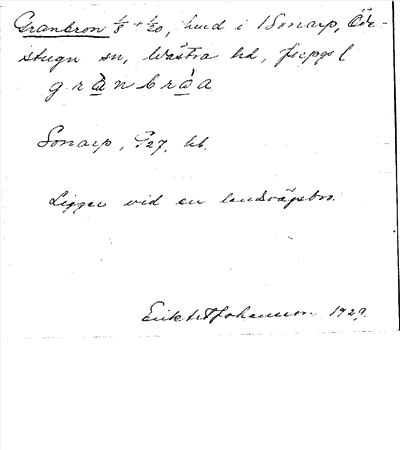 Granbron 1/8 + 1/20, hmd i Sonarp, Öde-
stugu sn, Västra hd,
g r à n b r å a
Sonarp, 27. hb.
Ligger vid en landsvägsbro.
Erik Johansson 1929.